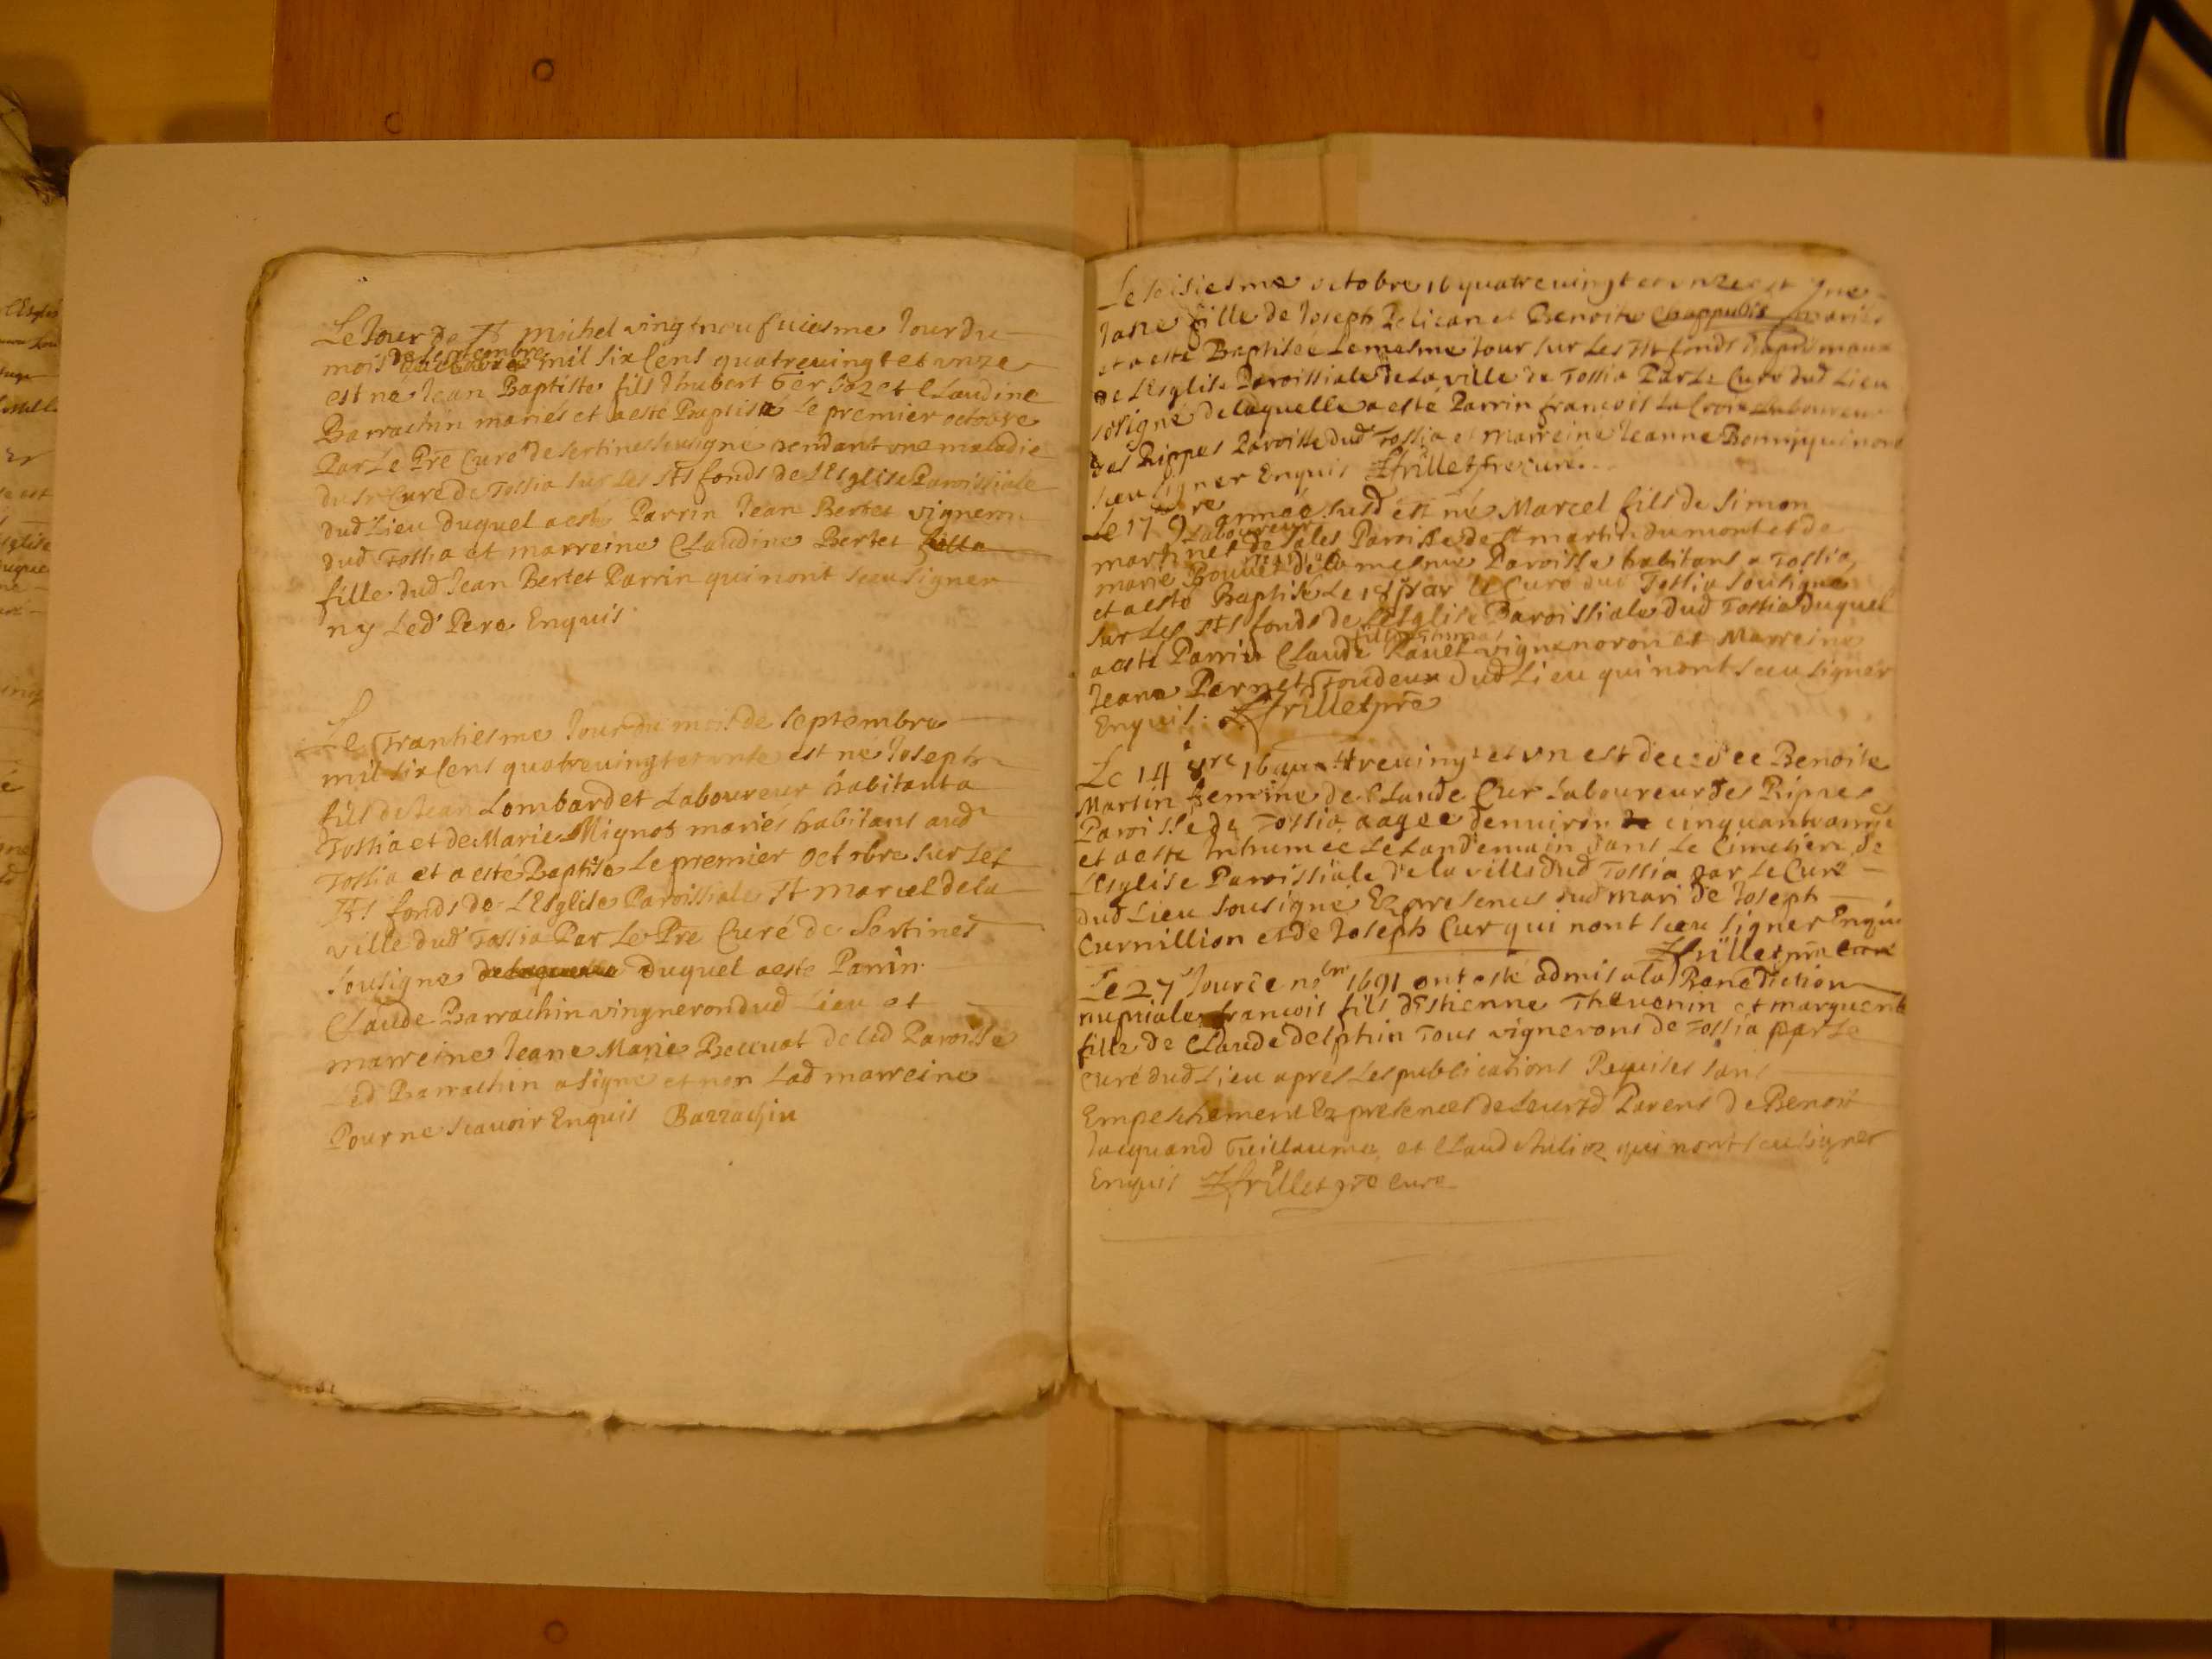 Le Jour de St Michel vingt neufuiesme Jour du
mois de septembre mil six Cens quatrevingt et unze
est né Jean Baptiste fils d'hubert et Claudine
Barrachin mariés et a esté Baptisé Le premier octobre
Par Le Pre Curé de Sertines sousigné pendant une maladie
du Sr Curé de Tossia sur Les Sts fonds de L'Esglise Paroissiale
dud Lieu duquel a esté Parrin Jean Bertet vigneron
dud Tossia et marreine Claudine Bertet fille
fille dud Jean Bertet Parrin qui n'ont sceu signer
ny Led Pere Enquis
Le Trantiesme Jour du mois de septembre
mil six Cens quatrevingt et unze est né Joseph
fils de Jean Lombardet Laboureur habitant a
Tossia et de Marie Mignot mariés habitans aud
Tossia et a esté Baptisé Le premier octobre sur Les
Sts fonds de L'Esglise Paroissiale St Marcel de la
ville dud Tossia Par Le Pre Curé de Sertines
sousigné de laquelle duquel a esté Parrin
Claude Barrachin vingneron dud Lieu et
marreine Jeane Marie Beccuat de lad Paroisse
Led Barrachin a signé et non Lad marreine
Pour ne scavoir Enquis Barrachin
Le octobre 16 quatrevingt et unze est
Jane fille de Joseph Pelican et Benoite Chappuis mariés
et a esté Baptisée Le mesme Jour sur Les Sts fonds Baptismaux
de L'Esglise Paroissiale de La ville de Tossia Par Le Curé dud Lieu
sosigné de laquelle a esté Parrin francois La Croix Laboureur
des Rippes Paroisse dud Tossia et marreine Jeanne qui n'ont
sceu signer Enquis Frillet pre curé
Le 17 9re année susd est né Marcel fils de Simon
Laboureur
martinet de Sales Paroisse de St martin du mont et de
marie Bouuet de la mesme Paroisse habitans a Tossia
et a esté Baptisé Le 18 par Le Curé dud Tossia sousigné
sur Les Sts fonds de L'Esglise Paroissiale dud Tossia duquel
a esté Parrin Claude Rauet vigneron et Marreine
Jeane Pernet Tondeur dud Lieu qui n'ont sceu signer
Enquis. Frillet pre
Le 14 8re 16 quattrevingt et un est decedée Benoite
Martin femme de Claude Cur Laboureur des Ripes
Paroisse de Tossia aagée denuiron de cinquante années
et a esté Inhumée Le Landemain dans Le Cimetiere de
L'Esglise Paroissiale de la ville dud Tossia par Le Curé
dud Lieu sousigné Ez presences dud mari de Joseph
Curnillion et de Joseph Cur qui n'ont sceu signer Enquis
Frillet pre curé
Le 27 Jour de nobre 1691 ont esté admis a la Benediction
nuptiale francois fils d'Estienne Thevenin et marguerite
fille de Claude Delphin Tous vignerons de Tossia par Le
curé dud Lieu apres Les publications Requises sans
Empeschement Ez presences de Leursd Parens de Benoit
Jacquand Guillaume et Claude qui n'ont sceu signer
Enquis Frillet pre curé